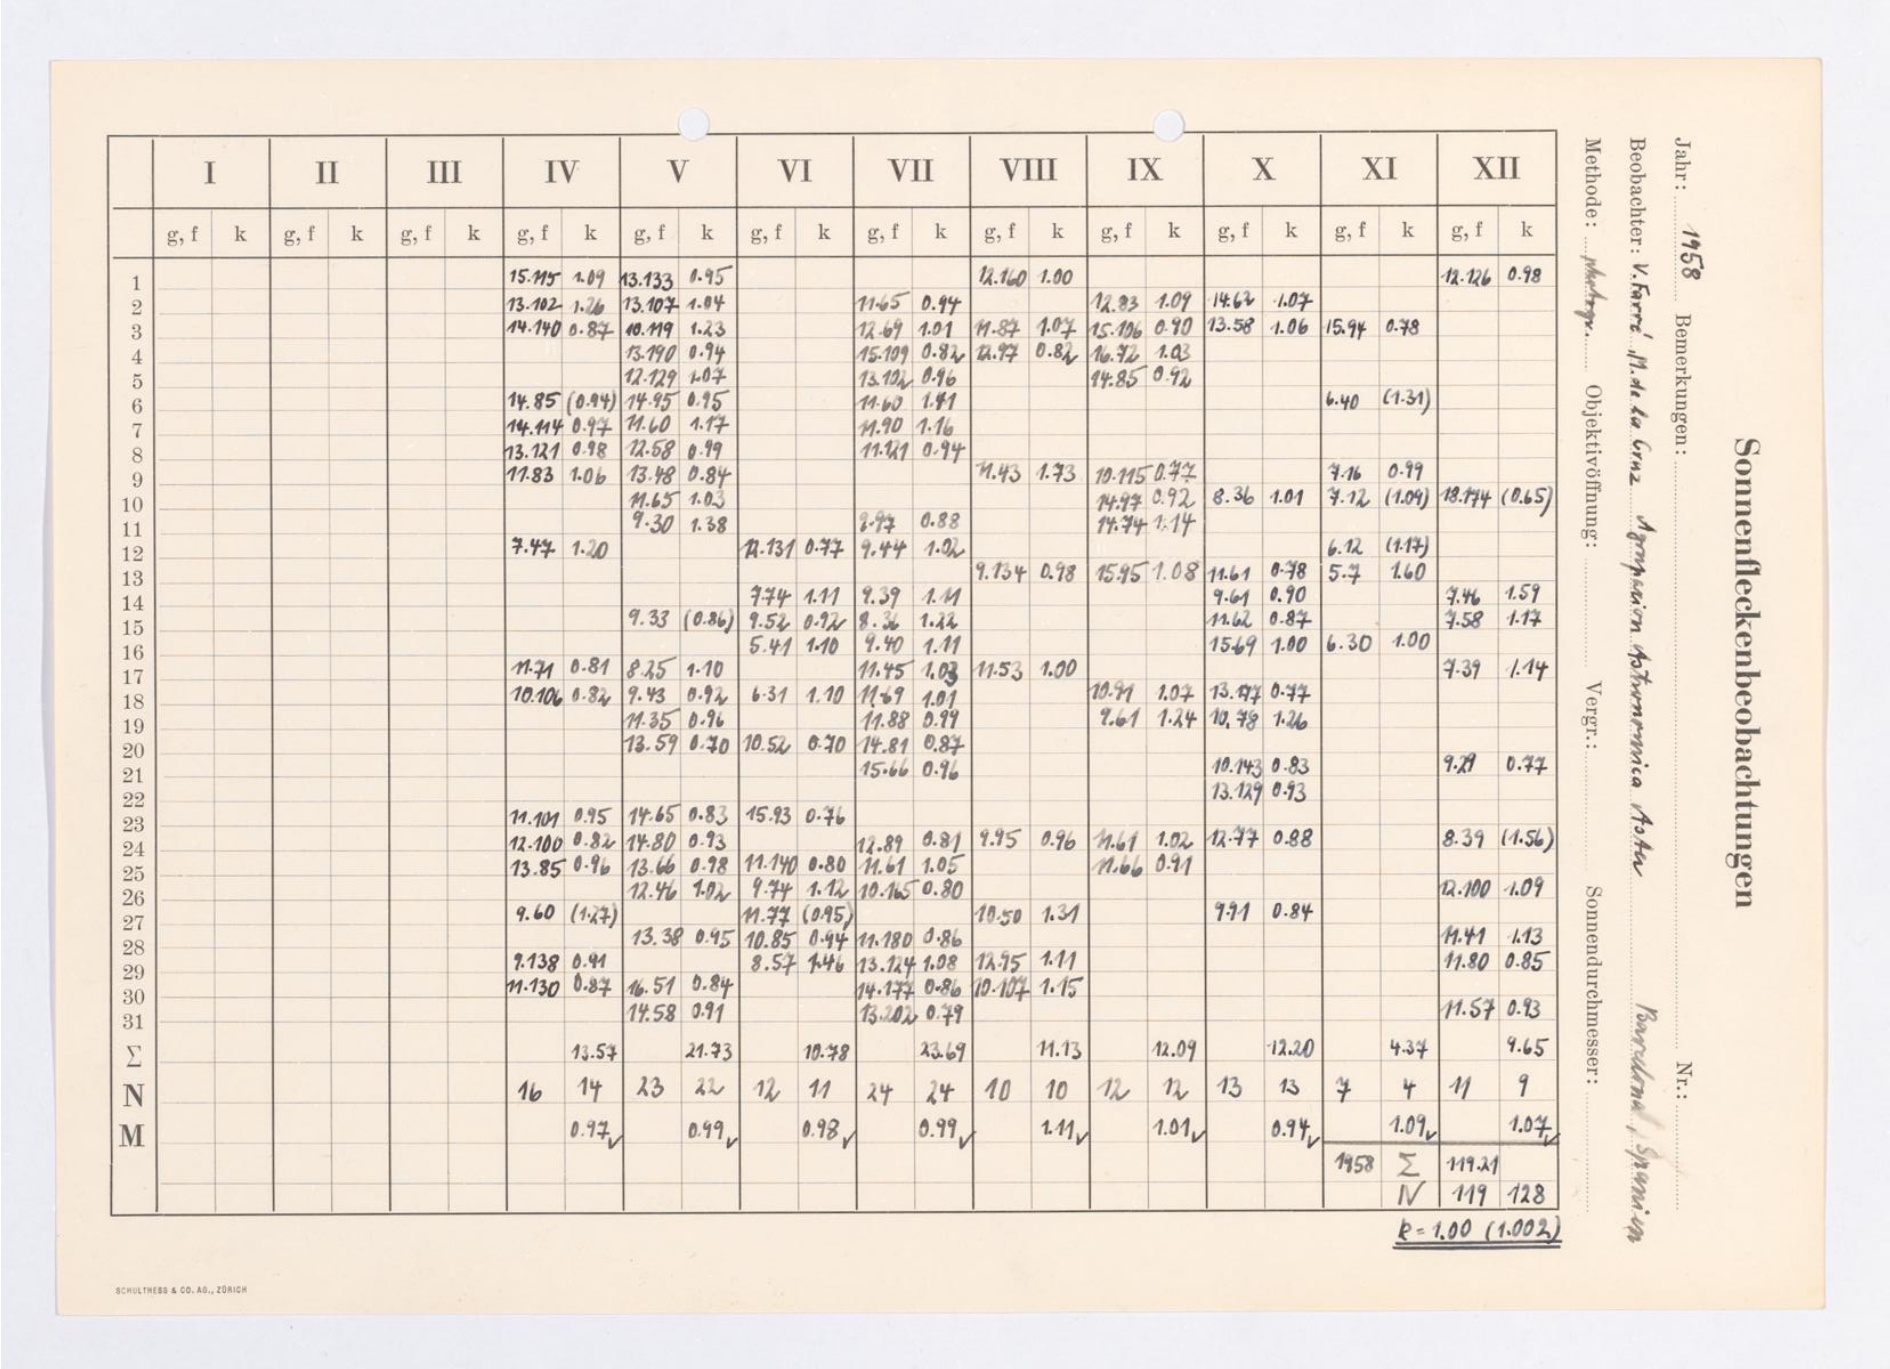 Sonnenfleckenbeobachtungen
Jahr: 1958 Bemerkungen: Nr.:
Beobachter: V. Farré, M. de la Cruz Agrupacion Astronomica Aster Barcelona, Spanien
Methode: Objektivöffnung: Vergr.: Sonnendurchmesser:
I II III IV V VI VII VIII IX X XI XII
g, f k g, f k g, f k g, f k g, f k g, f k g, f k g, f k g, f k g, f k g, f k g, f k
1 15.115 1.09 13.133 0.95 12.160 1.00 12.126 0.98
2 13.102 1.26 13.107 1.04 11.65 0.94 12.83 1.09 14.62 1.07
3 14.140 0.87 10.119 1.23 12.69 1.01 11.87 1.07 15.106 0.90 13.58 1.06 15.94 0.78
4 13.190 0.94 15.109 0.82 12.97 0.82 16.72 1.03
5 12.129 1.07 13.102 0.96 14.85 0.92
6 14.85 (0.94) 14.95 0.95 11.60 1.41 6.40 (1.31)
7 14.114 0.97 11.60 1.17 11.90 1.16
8 13.121 0.98 12.58 0.99 11.121 0.94
9 11.83 1.06 13.48 0.84 11.43 1.73 10.115 0.77 7.16 0.99
10 11.65 1.03 14.97 0.92 8.36 1.01 7.12 (1.09) 18.174 (0.65)
11 9.30 1.38 0.88 14.74 1.14
12 7.47 1.20 12.131 0.77 9.44 1.02 6.12 (1.17)
13 9.134 0.98 15.95 1.08 11.61 0.78 5.7 1.60
14 7.74 1.11 9.39 1.11 9.61 0.90 7.46 1.59
15 9.33 (0.86) 9.52 0.92 8.36 1.22 11.62 0.87 7.58 1.17
16 5.41 1.10 9.40 1.11 15.69 1.00 6.30 1.00
17 11.71 0.81 8.25 1.10 11.45 1.03 11.53 1.00 7.39 1.14
18 10.106 0.82 9.43 0.92 6.31 1.10 11.69 1.01 10.91 1.07 13.177 0.77
19 11.35 0.96 11.88 0.99 9.61 1.24 10.78 1.26
20 13.59 0.70 10.52 0.70 14.81 0.87
21 15.66 0.96 10.143 0.83 9.29 0.77
22 13.129 0.93
23 11.101 0.95 14.65 0.83 15.93 0.76
24 12.100 0.82 14.80 0.93 12.89 0.81 9.95 0.96 11.61 1.02 12.77 0.88 8.39 (1.56)
25 13.85 0.96 13.66 0.98 11.140 0.80 11.61 1.05 11.66 0.91
26 12.46 1.02 9.74 1.12 10.165 0.80 12.100 1.09
27 9.60 (1.27) 11.77 (0.95) 10.50 1.31 9.91 0.84
28 13.38 0.95 10.85 0.94 11.180 0.86 11.41 1.13
29 9.138 0.91 8.57 1.46 13.124 1.08 12.95 1.11 11.80 0.85
30 11.130 0.87 16.51 0.84 14.177 0.86 10.107 1.15
31 14.58 0.91 13.202 0.79 11.57 0.93
Σ 13.57 21.73 10.78 23.69 11.13 12.09 12.20 4.37 9.65
N 16 14 23 22 12 11 24 24 10 10 12 12 13 13 7 4 11 9
M 0.97✓ 0.99✓ 0.98✓ 0.99✓ 1.11✓ 1.01✓ 0.94✓ 1.09✓ 1.07✓
1958 Σ 119.21
N 119 128
k = 1.00 (1.002)
SCHULTHESS & CO. AG., ZÜRICH